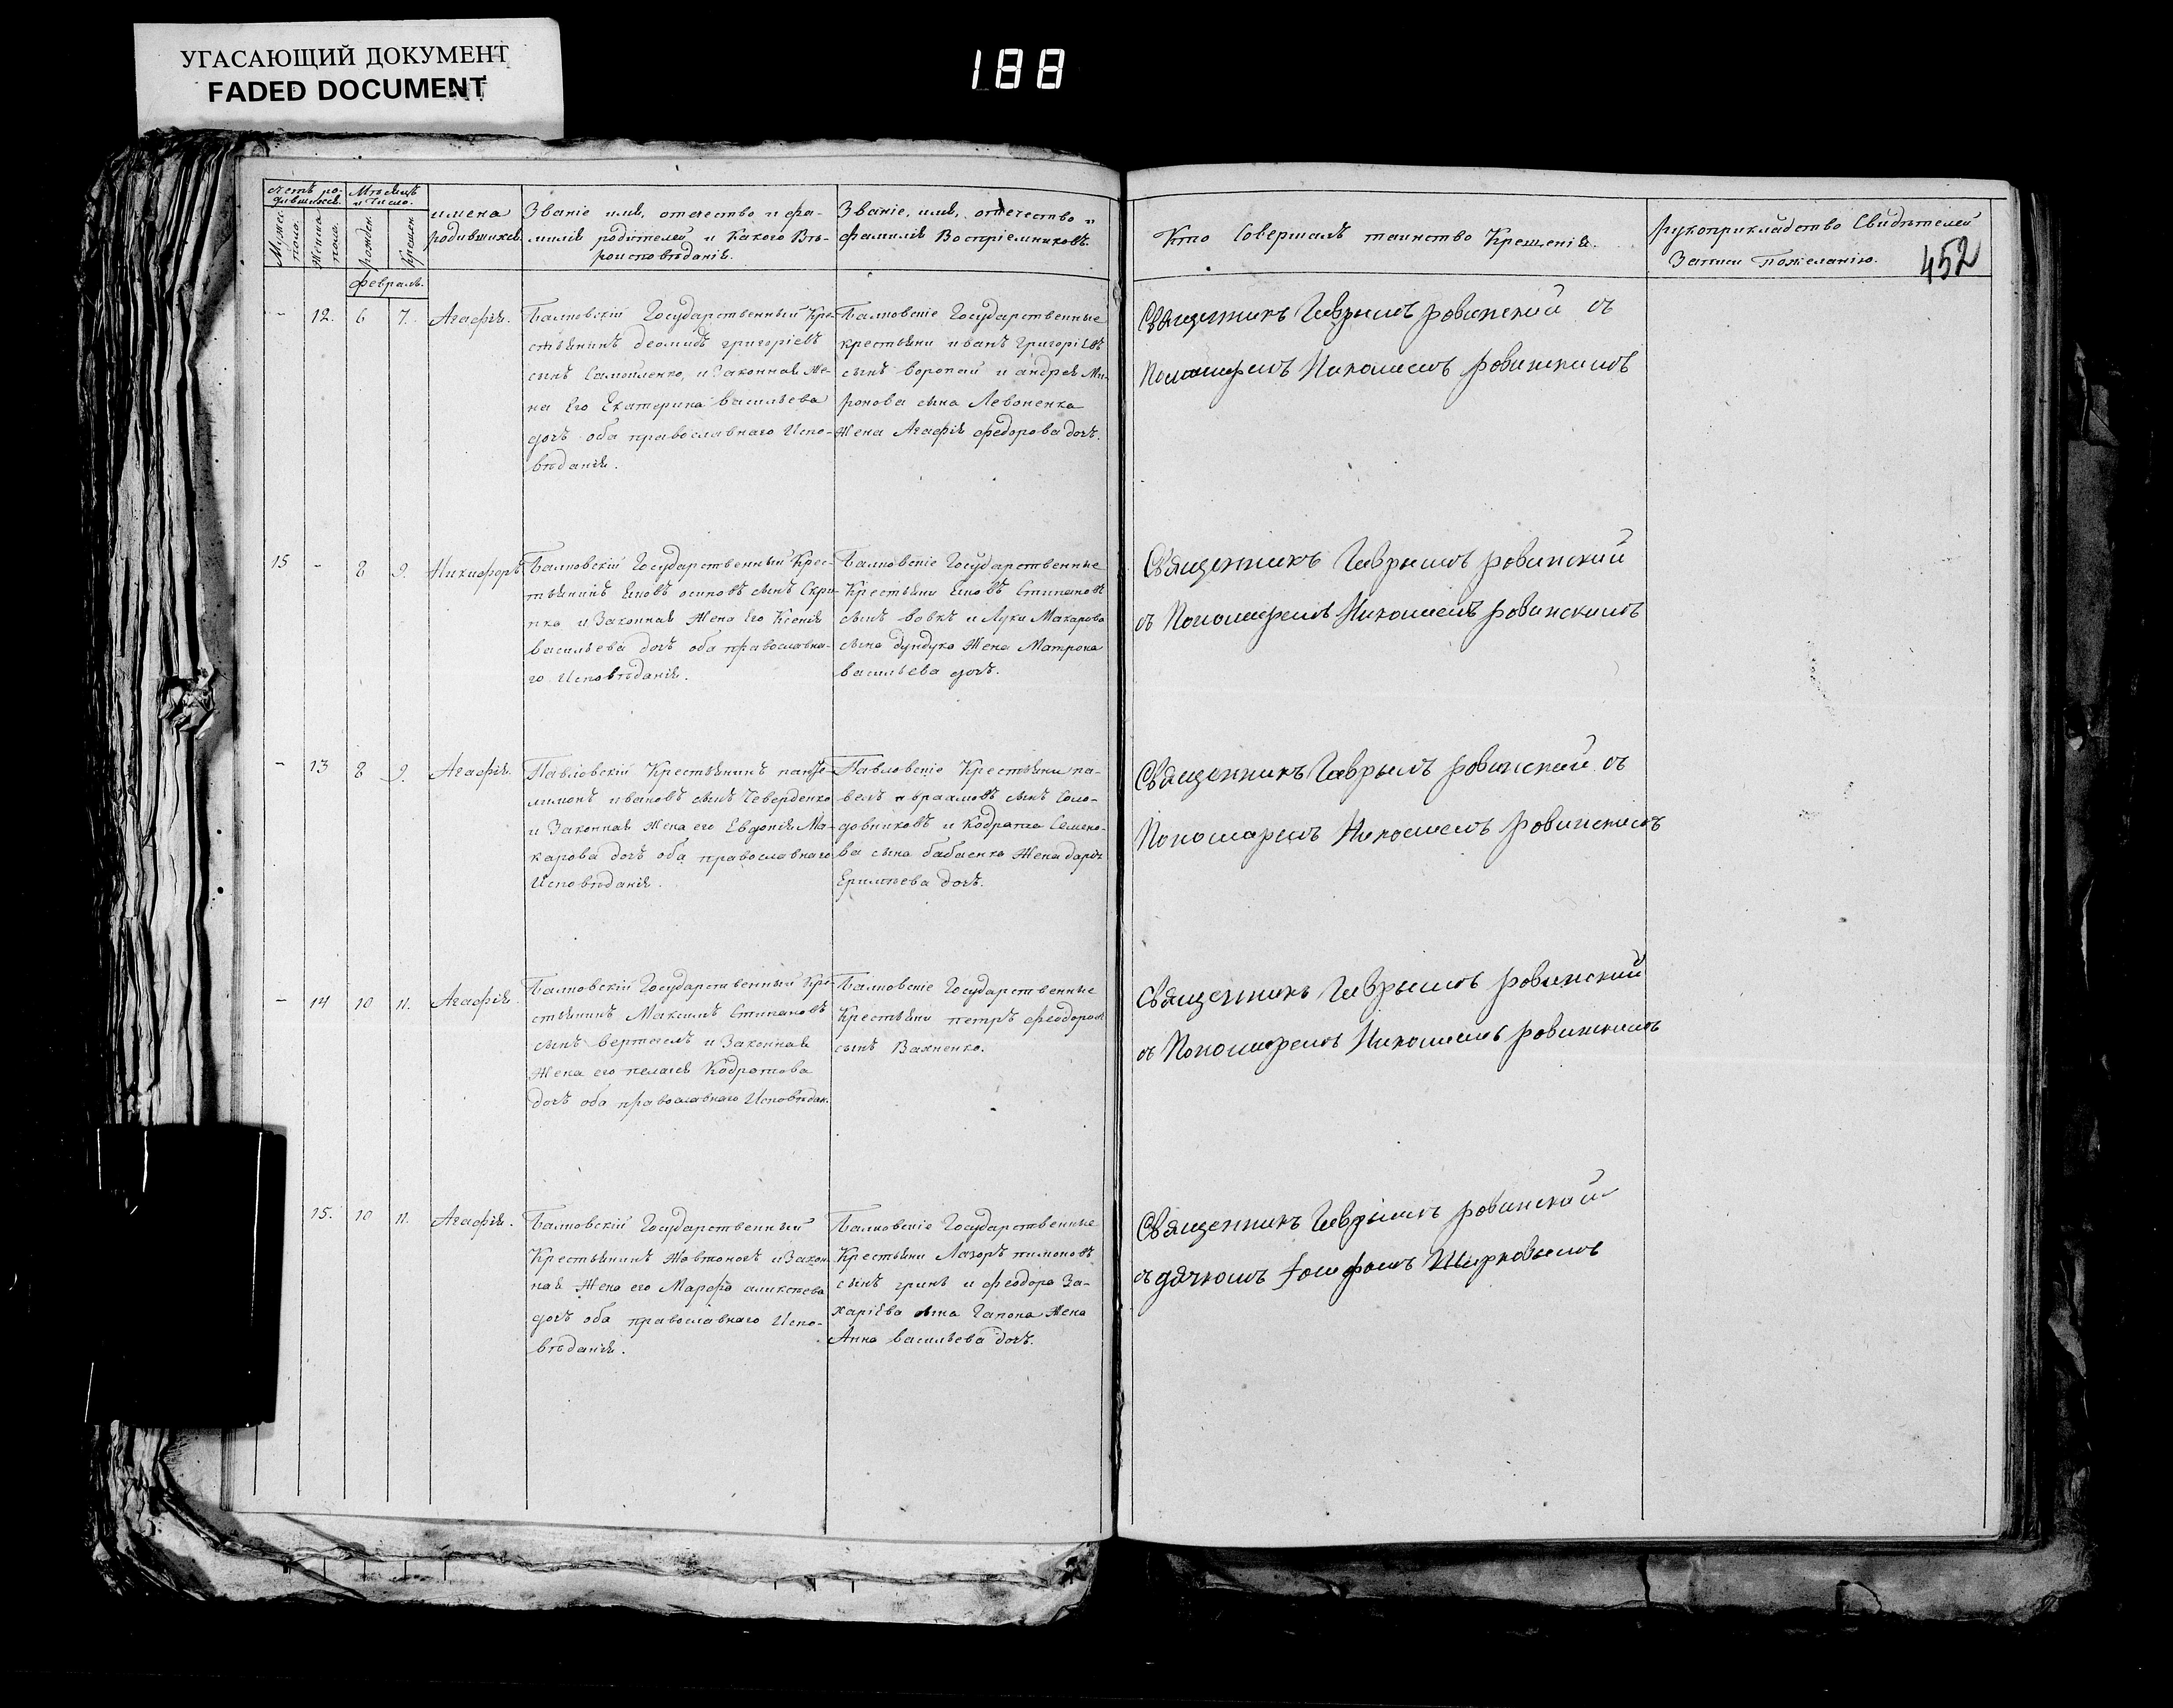 УГАСАЮЩИЙ ДОКУМЕНТ
FADED DOCUMENT
188
счетъ ро-
дившихся.
Мѣсяцъ
и число.
Мужес.
пола.
Женска
пола.
рожден.
крещен.
имена
родившихся.
Званіе имя, отечество и фа-
милія родителей и какого Вѣ-
роисповѣданія.
Званіе, имя, отечество и
фамилія Воспріемниковъ.
Кто Совершалъ таинство Крещенія.
рукоприкладство Свидѣтелей
Записи пожеланію.
452
февраль.
- 12. 6 7. Агафія.
Балковскій Государственный Кре-
стьянинъ деомидъ григоріевъ
сынъ Самойленко, и Законная Же-
на Его Екатерина васильева
дочъ оба православнаго Испо-
вѣданія.
Балковскіе Государственные
крестьяни иванъ григоріевъ
сынъ воропай и андрея Ми-
ронова сына Левоненка
Жена Агафія федорова дочъ.
Священникъ Гаврыилъ ровинский съ
Пономаремъ Николаемъ ровинскимъ
15 - 8 9. Никифоръ
Балковскій Государственный Крес-
тьянинъ Яковъ осиповъ сынъ Скри-
пка и Законная Жена Его Ксенія
васильева дочъ оба православна-
го Исповѣданія.
Балковскіе Государственные
Крестьяни Яковъ Стипановъ
сынъ вовкъ и Луки Макарова
сына дундука Жена Матрона
васильева дочъ.
Священникъ Гаврыилъ ровинский
съ Пономаремъ Николаемъ ровинскимъ
- 13 8 9. Агафія.
Павловскій Крестьянинъ панте-
лимонъ ивановъ сынъ Чевероденко
и Законная Жена его Евдокія Ма-
карова дочъ оба православнаго
Исповѣданія.
Павловскіе Крестьяни па-
велъ авраамовъ сынъ Соло-
довниковъ и Кодрата Семено-
ва сына бабаенка Жена дарія
Ермилѣева дочъ.
Священникъ Гаврыилъ ровинский съ
Пономаремъ Николаемъ ровинскимъ
- 14 10 11. Агафія.
Балковскій Государственный Кре-
стьянинъ Максимъ Стипановъ
сынъ вертегелъ и Законная
Жена его пелагея Кодратова
дочъ оба православнаго Исповѣдан.
Балковскіе Государственные
Крестьяни петръ феодоровъ
сынъ Вахненко.
Священникъ Гаврыилъ ровинский
съ Пономаремъ Николаемъ ровинскимъ
15. 10 11. Агафія.
Балковскій Государственный
Крестьянинъ Жовтоногъ и Закон-
ная Жена его Марфа аликсѣева
дочъ оба православнаго Испо-
вѣданія.
Балковскіе Государственные
Крестьяни Лазоръ пимоновъ
сынъ гринь и феодора За-
харіева сына Гапона Жена
Анна васильева дочъ.
Священникъ Гаврыилъ ровинский
съ дячкомъ Іосифомъ Ширковымъ